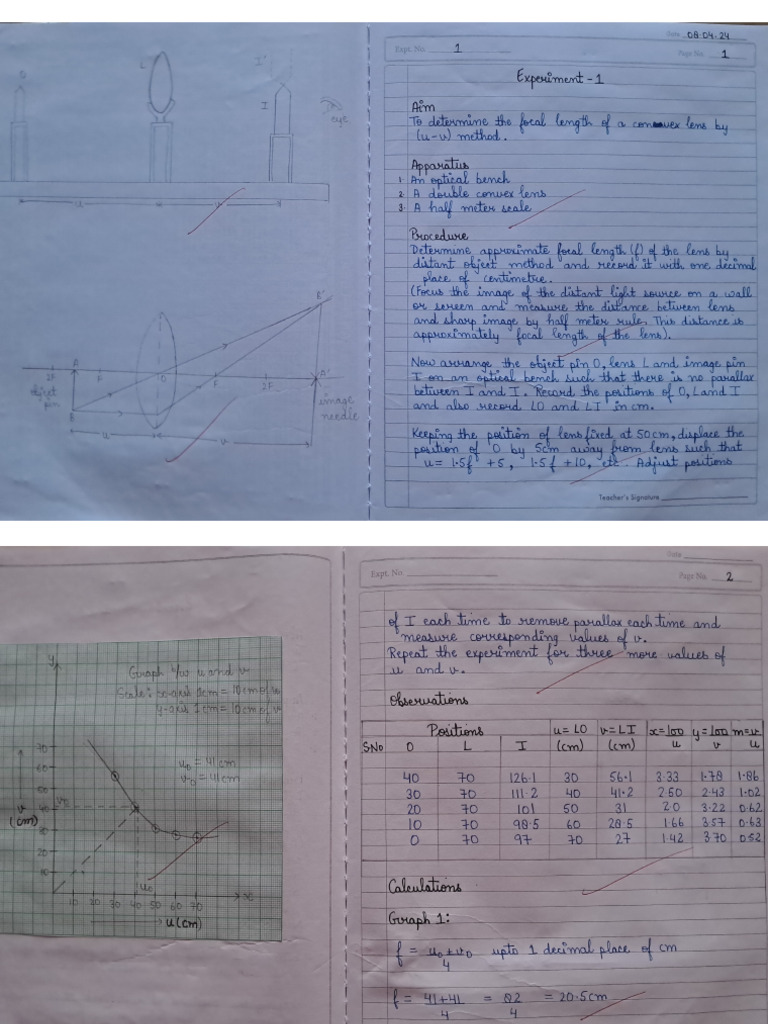 O
L
I'
I
eye
u
v
B'
A
2F
F
O
F
2F
A'
object
pin
B
image
needle
u
v
Date 08.04.24
Expt. No. 1
Page No. 1
Experiment - 1
Aim
To determine the focal length of a convex lens by
(u-v) method.
Apparatus
1. An optical bench
2. A double convex lens
3. A half meter scale
Procedure
Determine approximate focal length (f) of the lens by
distant object method and record it with one decimal
place of centimetre.
(Focus the image of the distant light source on a wall
or screen and measure the distance between lens
and sharp image by half meter rule. This distance is
approximately focal length of the lens).
Now arrange the object pin O, lens L and image pin
I on an optical bench such that there is no parallax
between I and I. Record the positions of O, L and I
and also record LO and LI in cm.
Keeping the position of lens fixed at 50cm, displace the
position of O by 5cm away from lens such that
u = 1.5f +5, 1.5f +10, etc. Adjust positions
Teacher's Signature
Date
Expt. No.
Page No. 2
of I each time to remove parallax each time and
measure corresponding values of v.
Repeat the experiment for three more values of
u and v.
Observations
SNo Positions u=LO v=LI x=100 y=100 m=v
O L I (cm) (cm) u v u
40 70 126.1 30 56.1 3.33 1.78 1.86
30 70 111.2 40 41.2 2.50 2.43 1.02
20 70 101 50 31 2.0 3.22 0.62
10 70 98.5 60 28.5 1.66 3.57 0.63
0 70 97 70 27 1.42 3.70 0.52
Calculations
Graph 1:
f = u0+v0 upto 1 decimal place of cm
4
f = 41+41 = 82 = 20.5cm
4 4
y
Graph b/w u and v
Scale: x-axis 1cm = 10cm of u
y-axis 1cm = 10cm of v
u0 = 41cm
v0 = 41cm
70
60
50
40
30
20
10
v0
v
(cm)
u0
10 20 30 40 50 60 70
x
u(cm)